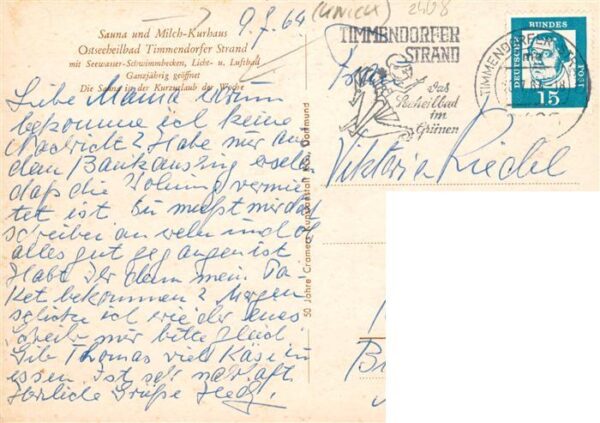 9.7.64
2408
Sauna und Milch-Kurhaus
Ostseeheilbad Timmendorfer Strand
mit Seewasser-Schwimmbecken, Licht- u. Luftbad
Ganzjährig geöffnet
Die Sauna in der Kurzurlaub der Woche
Libe Mama Warum
bekomme ich keine
Nachricht? Habe nur an
dem Bankauszug
daß die Wohnung vermie
tet ist. Du mußt mir doch
schreiben an wehn und ob
alles gut gegangen ist
Habt Ihr denn mein Pa-
ket bekommen? Morgen
schicke ich wieder eines
schreib mir bitte gleich.
Gib Thomas viel Käse zu
essen. ist sehr nahrhaft
Herzliche Grüße
50 Jahre Cramers Kunstanstalt KG, Dortmund
TIMMENDORFER
STRAND
das
Ostseeheilbad
im
Grünen
TIMMENDORFER
DEUTSCHE BUNDESPOST
15
Frau
Viktoria Riedel